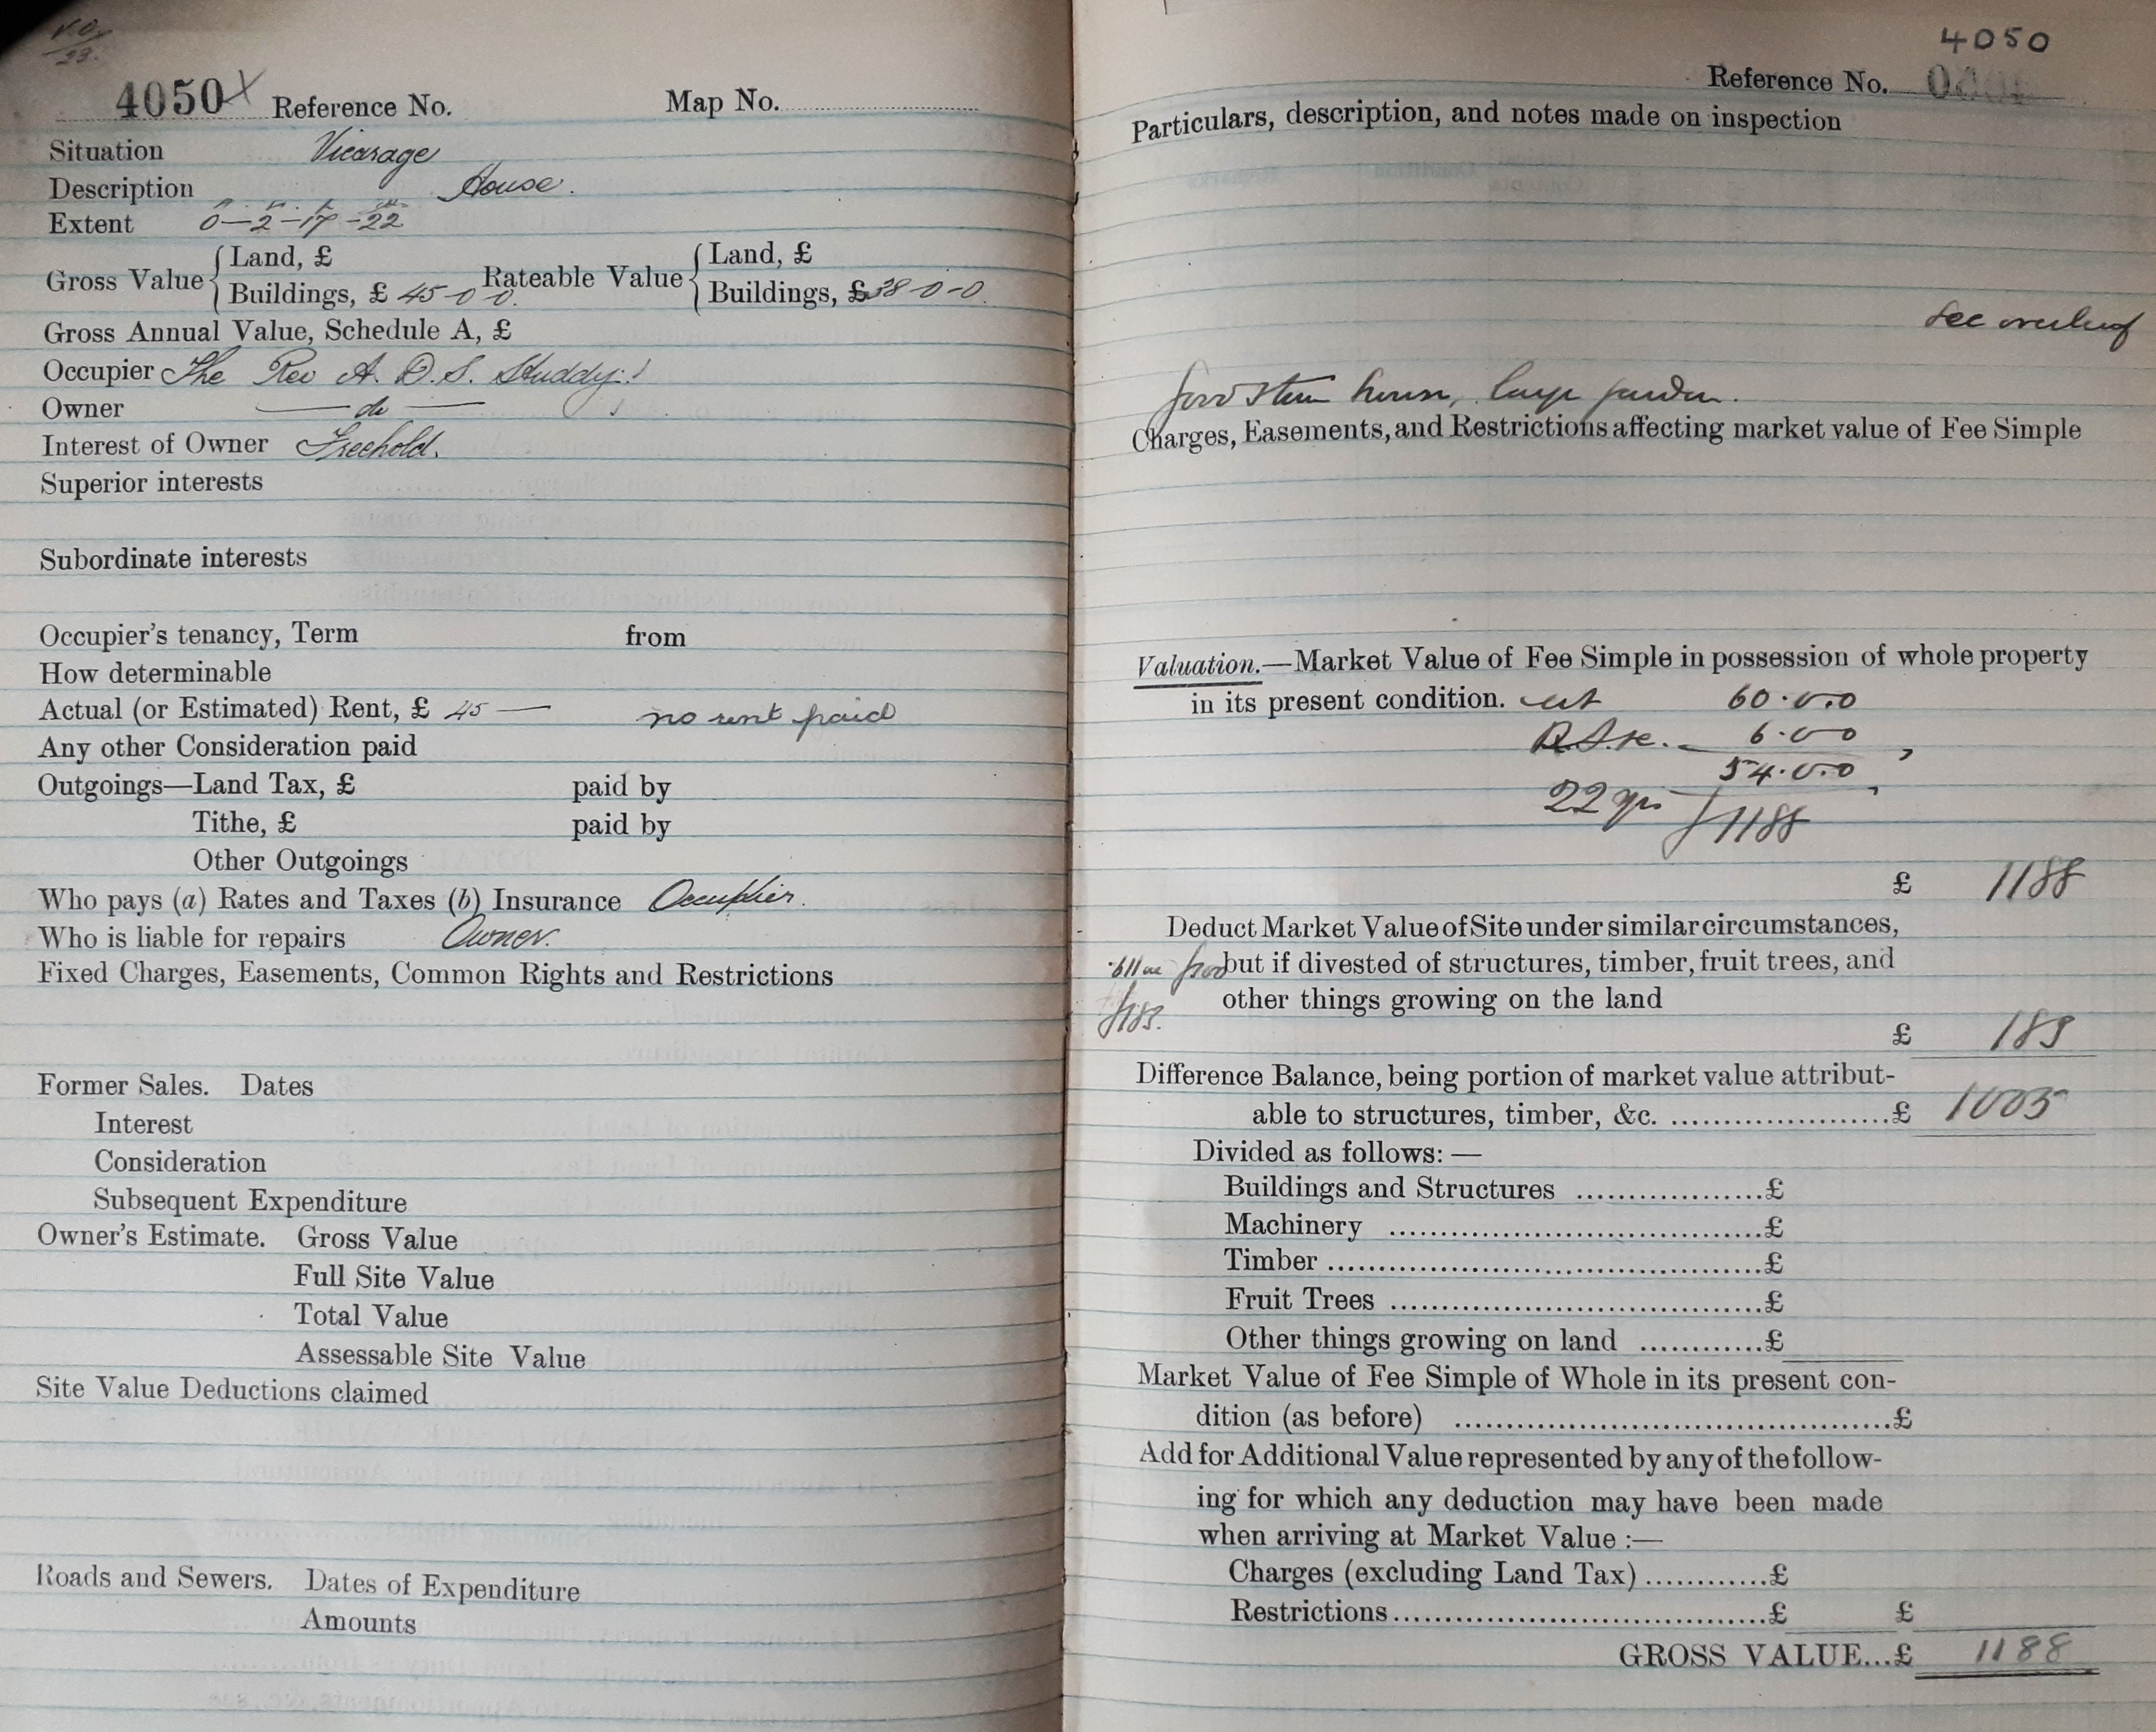 4050 X Reference No. Map No.
Situation Vicarage
Description House.
Extent 0-2-17-22
Gross Value { Land, £
Buildings, £ 45-0-0.
Rateable Value { Land, £
Buildings, £ 38-0-0.
Gross Annual Value, Schedule A, £
Occupier The Rev A. D. S. Studdy.
Owner — do —
Interest of Owner Freehold.
Superior interests
Subordinate interests
Occupier's tenancy, Term from
How determinable
Actual (or Estimated) Rent, £ 45 — no rent paid
Any other Consideration paid
Outgoings—Land Tax, £ paid by
Tithe, £ paid by
Other Outgoings
Who pays (a) Rates and Taxes (b) Insurance Occupier.
Who is liable for repairs Owner.
Fixed Charges, Easements, Common Rights and Restrictions
Former Sales. Dates
Interest
Consideration
Subsequent Expenditure
Owner's Estimate. Gross Value
Full Site Value
Total Value
Assessable Site Value
Site Value Deductions claimed
Roads and Sewers. Dates of Expenditure
Amounts
4050
Reference No.
Particulars, description, and notes made on inspection
See overleaf
good stone house, large garden.
Charges, Easements, and Restrictions affecting market value of Fee Simple
Valuation.—Market Value of Fee Simple in possession of whole property
in its present condition. est 60.0.0
6.0.0
54.0.0
22 yrs £1188
£ 1188
Deduct Market Value of Site under similar circumstances,
but if divested of structures, timber, fruit trees, and
other things growing on the land
£183.
£ 183
Difference Balance, being portion of market value attribut-
able to structures, timber, &c. ....................£ 1005
Divided as follows:—
Buildings and Structures ...................£
Machinery ...................................£
Timber .........................................£
Fruit Trees ...................................£
Other things growing on land ............£
Market Value of Fee Simple of Whole in its present con-
dition (as before) .........................................£
Add for Additional Value represented by any of the follow-
ing for which any deduction may have been made
when arriving at Market Value :—
Charges (excluding Land Tax) ............£
Restrictions ...................................£ £
GROSS VALUE...£ 1188